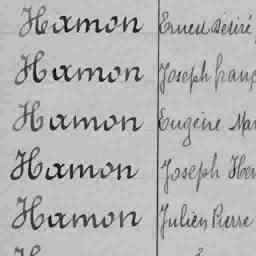 Hamon Ernest Désiré
Hamon Joseph franç
Hamon Eugène Mar
Hamon Joseph Hen
Hamon Julien Pierre